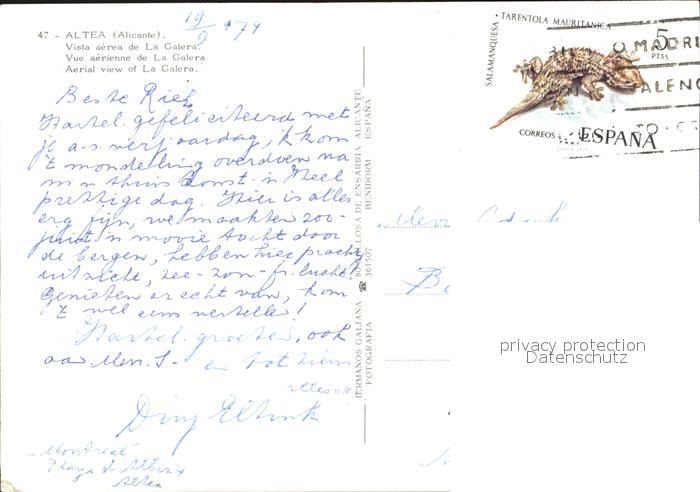 19/9 '74
47 - ALTEA (Alicante).
Vista aérea de La Galera.
Vue aérienne de La Galera
Aerial view of La Galera.
Beste Riek
Hartel. gefeliciteerd met
je a.s. verjaardag, ik kom
't mondeling overdoen na
m'n thuis komst. 'n Heel
prettige dag. Hier is alles
erg fijn, we maakten zoo-
juist 'n mooie tocht door
de bergen, hebben hier pracht
uitzicht, zee- zon- fr. lucht!
Genieten er echt van, kom
't wel eens vertellen!
Hartel. groeten, ook
aan Mevr. S. en tot ziens
Diny Eltink
"Montreal"
Playa d'Albir
Altea
HERMANOS GALIANA
FOTOGRAFIA
☎ 361507 BENIDORM ESPAÑA
DE ENSARRIA ALICANTE
SALAMANQUESA · TARENTOLA MAURITANICA
5 PTAS
CORREOS ESPAÑA
MADRI
ALENC
Mevr
privacy protection
Datenschutz